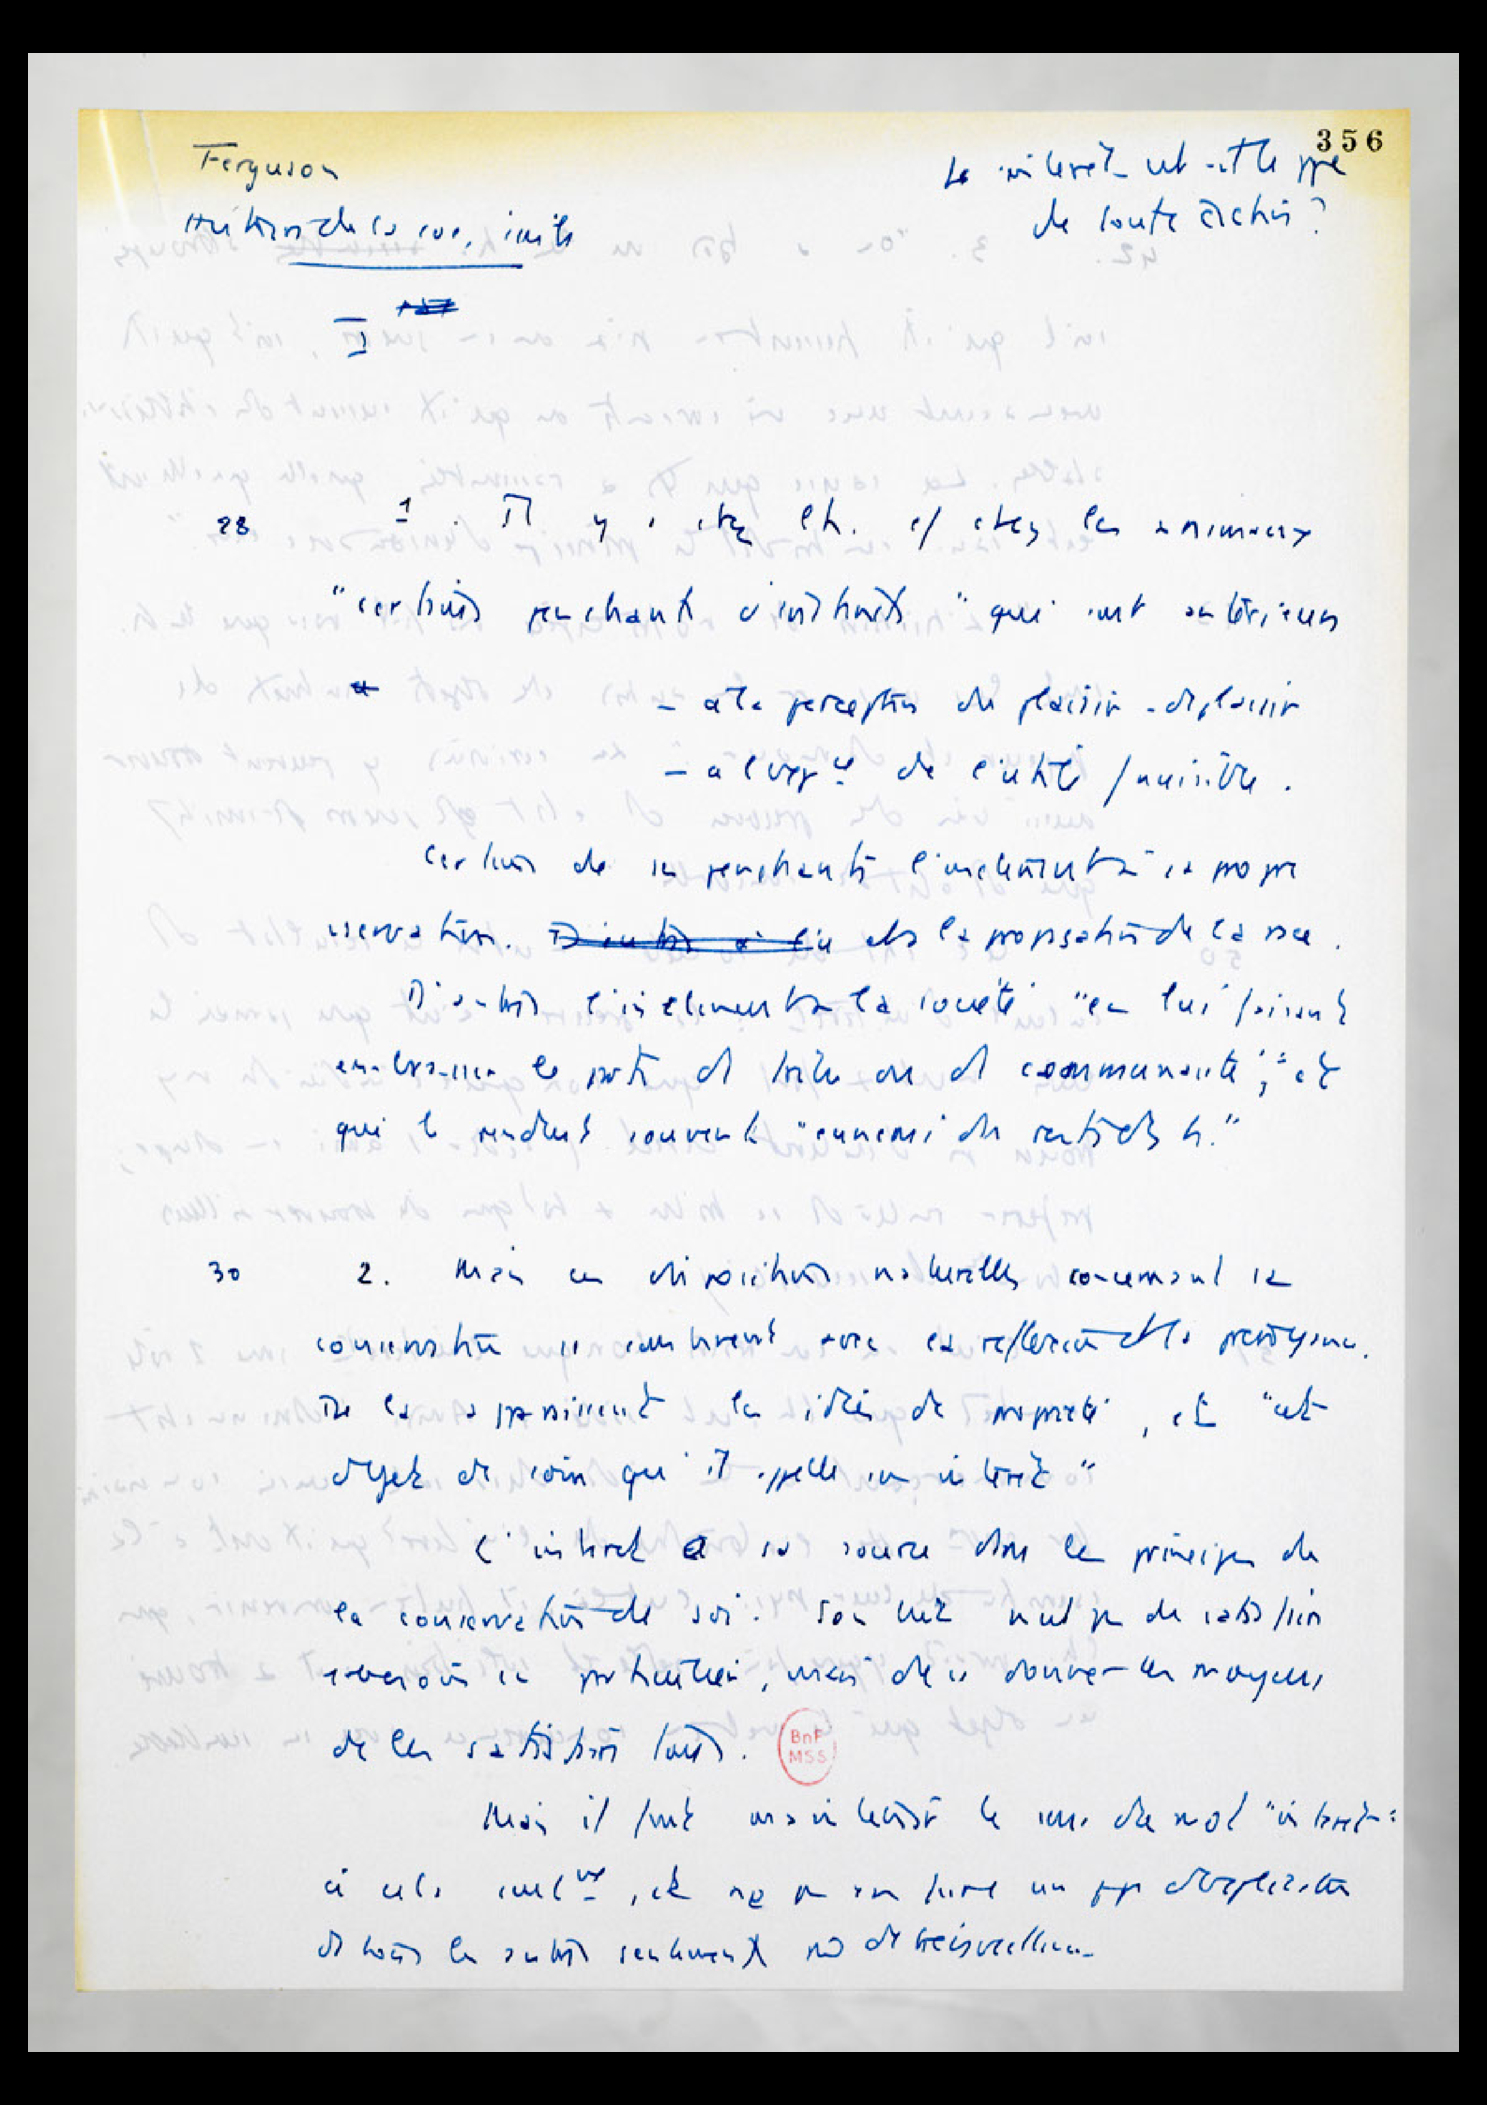 356
Ferguson
L'intérêt est-il le ppe
de toute action ?
Histoire de la soc. civile
I
28 1. Il y a chez l'h. et chez les animaux
"certains penchants d'instincts" qui sont antérieurs
- à la perception du plaisir - déplaisir
- à l'exp ce de l'utile / nuisible.
Certains de ces penchants l'inclinent à sa propre
conservation. D'autres à la propagation de la race.
D'autres l'inclinent à la société "en lui faisant
embrasser le parti d' tribu ou d' communauté", et
qui le rendent souvent "ennemi du reste des h."
30 2. Mais ces dispositions naturelles concernant sa
conservation se combinent avec la réflexion et la prévoyance.
De là apparaissent les idées de propriété, et "cet
objet de soin qu'il appelle son intérêt"
L'intérêt a sa source dans les principes de
la conservation de soi. Son but n'est pas de satisfaire
en particulier, mais de se donner les moyens
de les satisfaire tous.
BnF
MSS
Mais il faut maintenir le sens du mot "intérêt"
à cela seul, et ne pas en faire un ppe d'explication
de tous les autres sentiments de bienveillance